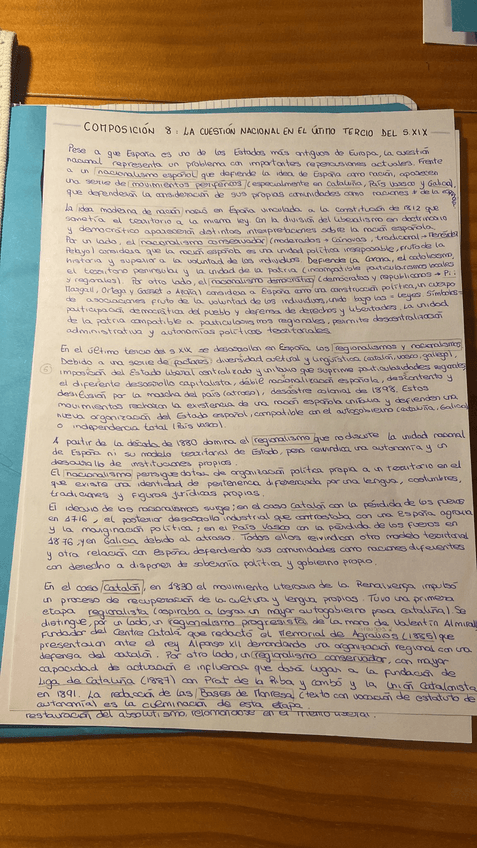 COMPOSICIÓN 8: LA CUESTIÓN NACIONAL EN EL ÚTIMO TERCIO DEL S.XIX
Pese a que España es uno de los Estados más antiguos de Europa, la cuestión
nacional representa un problema con importantes repercusiones actuales. Frente
a un nacionalismo español que defiende la idea de España como nación, aparecen
una serie de movimientos periféricos (especialmente en Cataluña, País Vasco y Galicia),
que defenderán la consideración de sus propias comunidades como naciones
La idea moderna de nación nació en España vinculada a la constitución de 1812 que
sometía el territorio a la misma ley. Con la división del liberalismo en doctrinario
y democrático aparecerán distintas interpretaciones sobre la nación española.
Por un lado, el nacionalismo conservador (moderados → Cánovas, tradicional → Menéndez
Pelayo) considera que la nación española es una unidad política irresponsable, fruto de la
historia y superior a la voluntad de los individuos. Defiende la Corona, el catolicismo,
el territorio peninsular y la unidad de la patria (incompatibles particularismos locales
y regionales). Por otro lado, el nacionalismo democrático (demócratas y republicanos → Pi i
Maragall, Ortega y Gasset o Azaña) considera a España como una construcción política, un cuerpo
de asociaciones fruto de la voluntad de los individuos, unido bajo las leyes.
participación democrática del pueblo y defensa de derechos y libertades. La unidad
de la patria compatible a particularismos regionales, permite descentralización
administrativa y autonomías políticas territoriales.
En el último tercio de s XIX se desarrollan en España los regionalismos y nacionalismos
Debido a una serie de factores: diversidad cultural y lingüística (catalán, vasco, gallego),
imposición del Estado liberal centralizado y unitario que suprime particularidades
el diferente desarrollo capitalista, débil nacionalización española, descontento y
desilusión por la marcha del país (atraso), desastre colonial de 1898. Estos
movimientos rechazan la existencia de una nación española unitaria y defienden una
nueva organización del Estado español, compatible con el autogobierno (Cataluña, Galicia)
o independencia total (País Vasco).
A partir de la década de 1880 domina el regionalismo que no discute la unidad nacional
de España ni su modelo territorial de Estado, pero reivindica una autonomía y un
desarrollo de instituciones propias.
El nacionalismo persigue dotar de organización política propia a un territorio en el
que existe una identidad de pertenencia diferenciada por una lengua, costumbres,
tradiciones y figuras jurídicas propias.
El ideario de los nacionalismos surge: en el caso Catalán con la pérdida de los fueros
en 1716, el posterior desarrollo industrial que contrastaba con una España agraria
y la marginación política; en el País Vasco con la pérdida de los fueros en
1876, y en Galicia debido al atraso. Todos ellos reivindican otro modelo territorial
y otra relación con España, defendiendo sus comunidades como naciones diferentes
con derecho a disponer de soberanía política y gobierno propio.
En el caso Catalán, en 1830 el movimiento literario de la Renaixença impulsó
un proceso de recuperación de la cultura y lengua propias. Tuvo una primera
etapa regionalista (aspiraba a lograr un mayor autogobierno para Cataluña). Se
distingue, por un lado, un regionalismo progresista de la mano de Valentín Almirall
fundador del Centre Català que redactó el Memorial de Agravios (1885) que
presentaban ante el rey Alfonso XII demandando una organización regional con una
defensa del catalán. Por otro lado, un regionalismo conservador, con mayor
capacidad de actuación e influencia que daba lugar a la fundación de
Liga de Cataluña (1887) con Prat de la Riba y Cambó y la Unión Catalanista
en 1891. La redacción de las Bases de Manresa (texto con vocación de estatuto de
autonomía) es la culminación de esta etapa.
restauración del absolutismo,